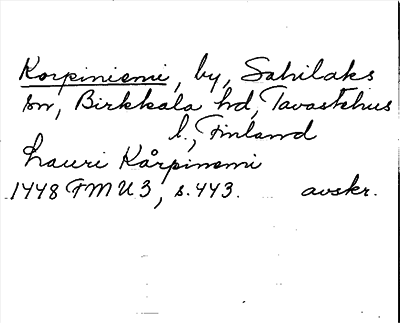 Korpiniemi, by, Sahilaks
sn, Birkkala hd, Tavastehus
l., Finland
Lauri Kårpinemi
1448 FMU 3, s. 443. avskr.